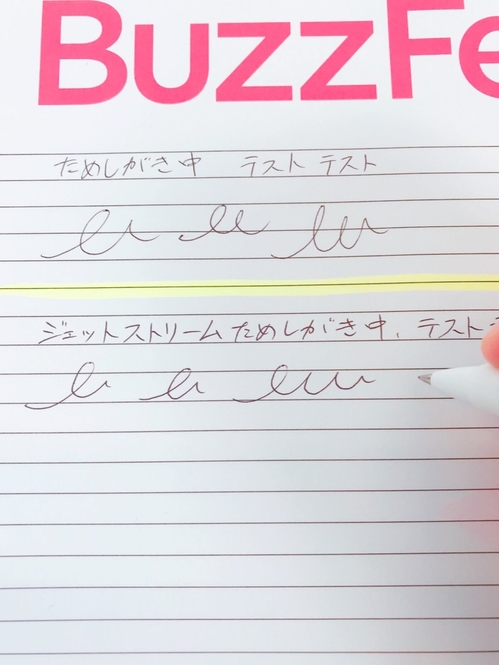 BuzzFe
ためしがき中 テスト テスト
ジェットストリームためしがき中、テスト